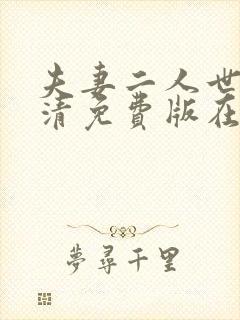 夫妻二人世
清免費版在
夢尋千里